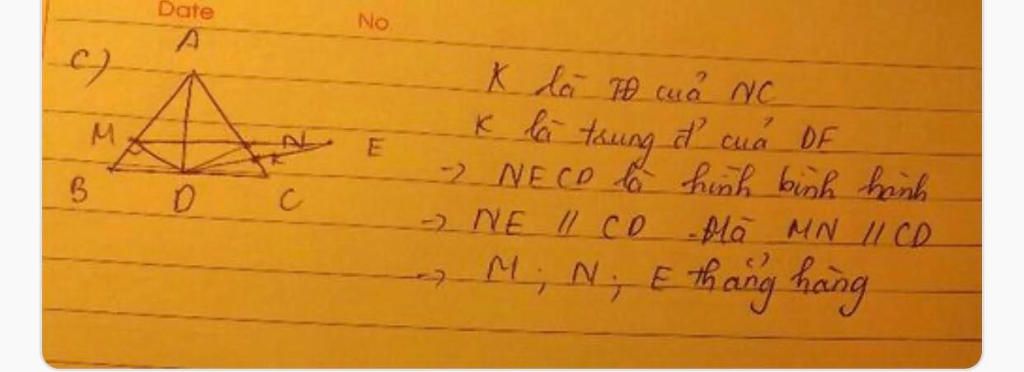 Date
No
c)
A
M
N
E
K
B
D
C
K là TĐ cuả NC
K là trung đ' cuả DF
-> NECD là hình bình hành
-> NE // CD Mà MN // CD
-> M; N; E thẳng hàng